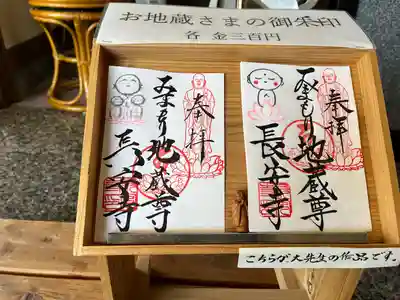 お地蔵さまの御朱印
各 金三百円
奉拝
みまもり地蔵尊
長谷寺
奉拝
みまもり地蔵尊
長谷寺
こちらが大先生の作品です。